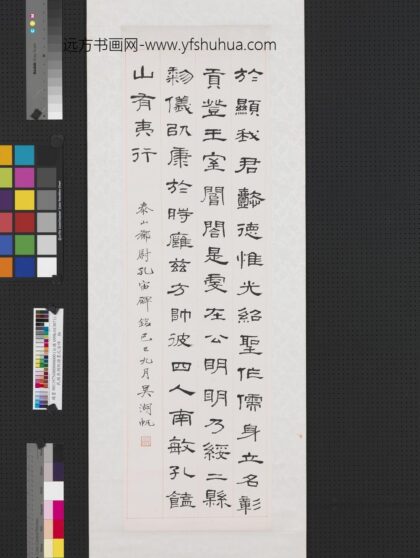 远方书画网-www.yfshuhua.com
於顯我君懿德惟光紹聖作儒身立名彰
貢登王室閽閤是虔在公明明乃綏二縣
黎儀以康於時廱茲方帥彼四人南敏孔饁
山有夷行
泰山都尉孔宙碑銘己丑九月吳湖帆